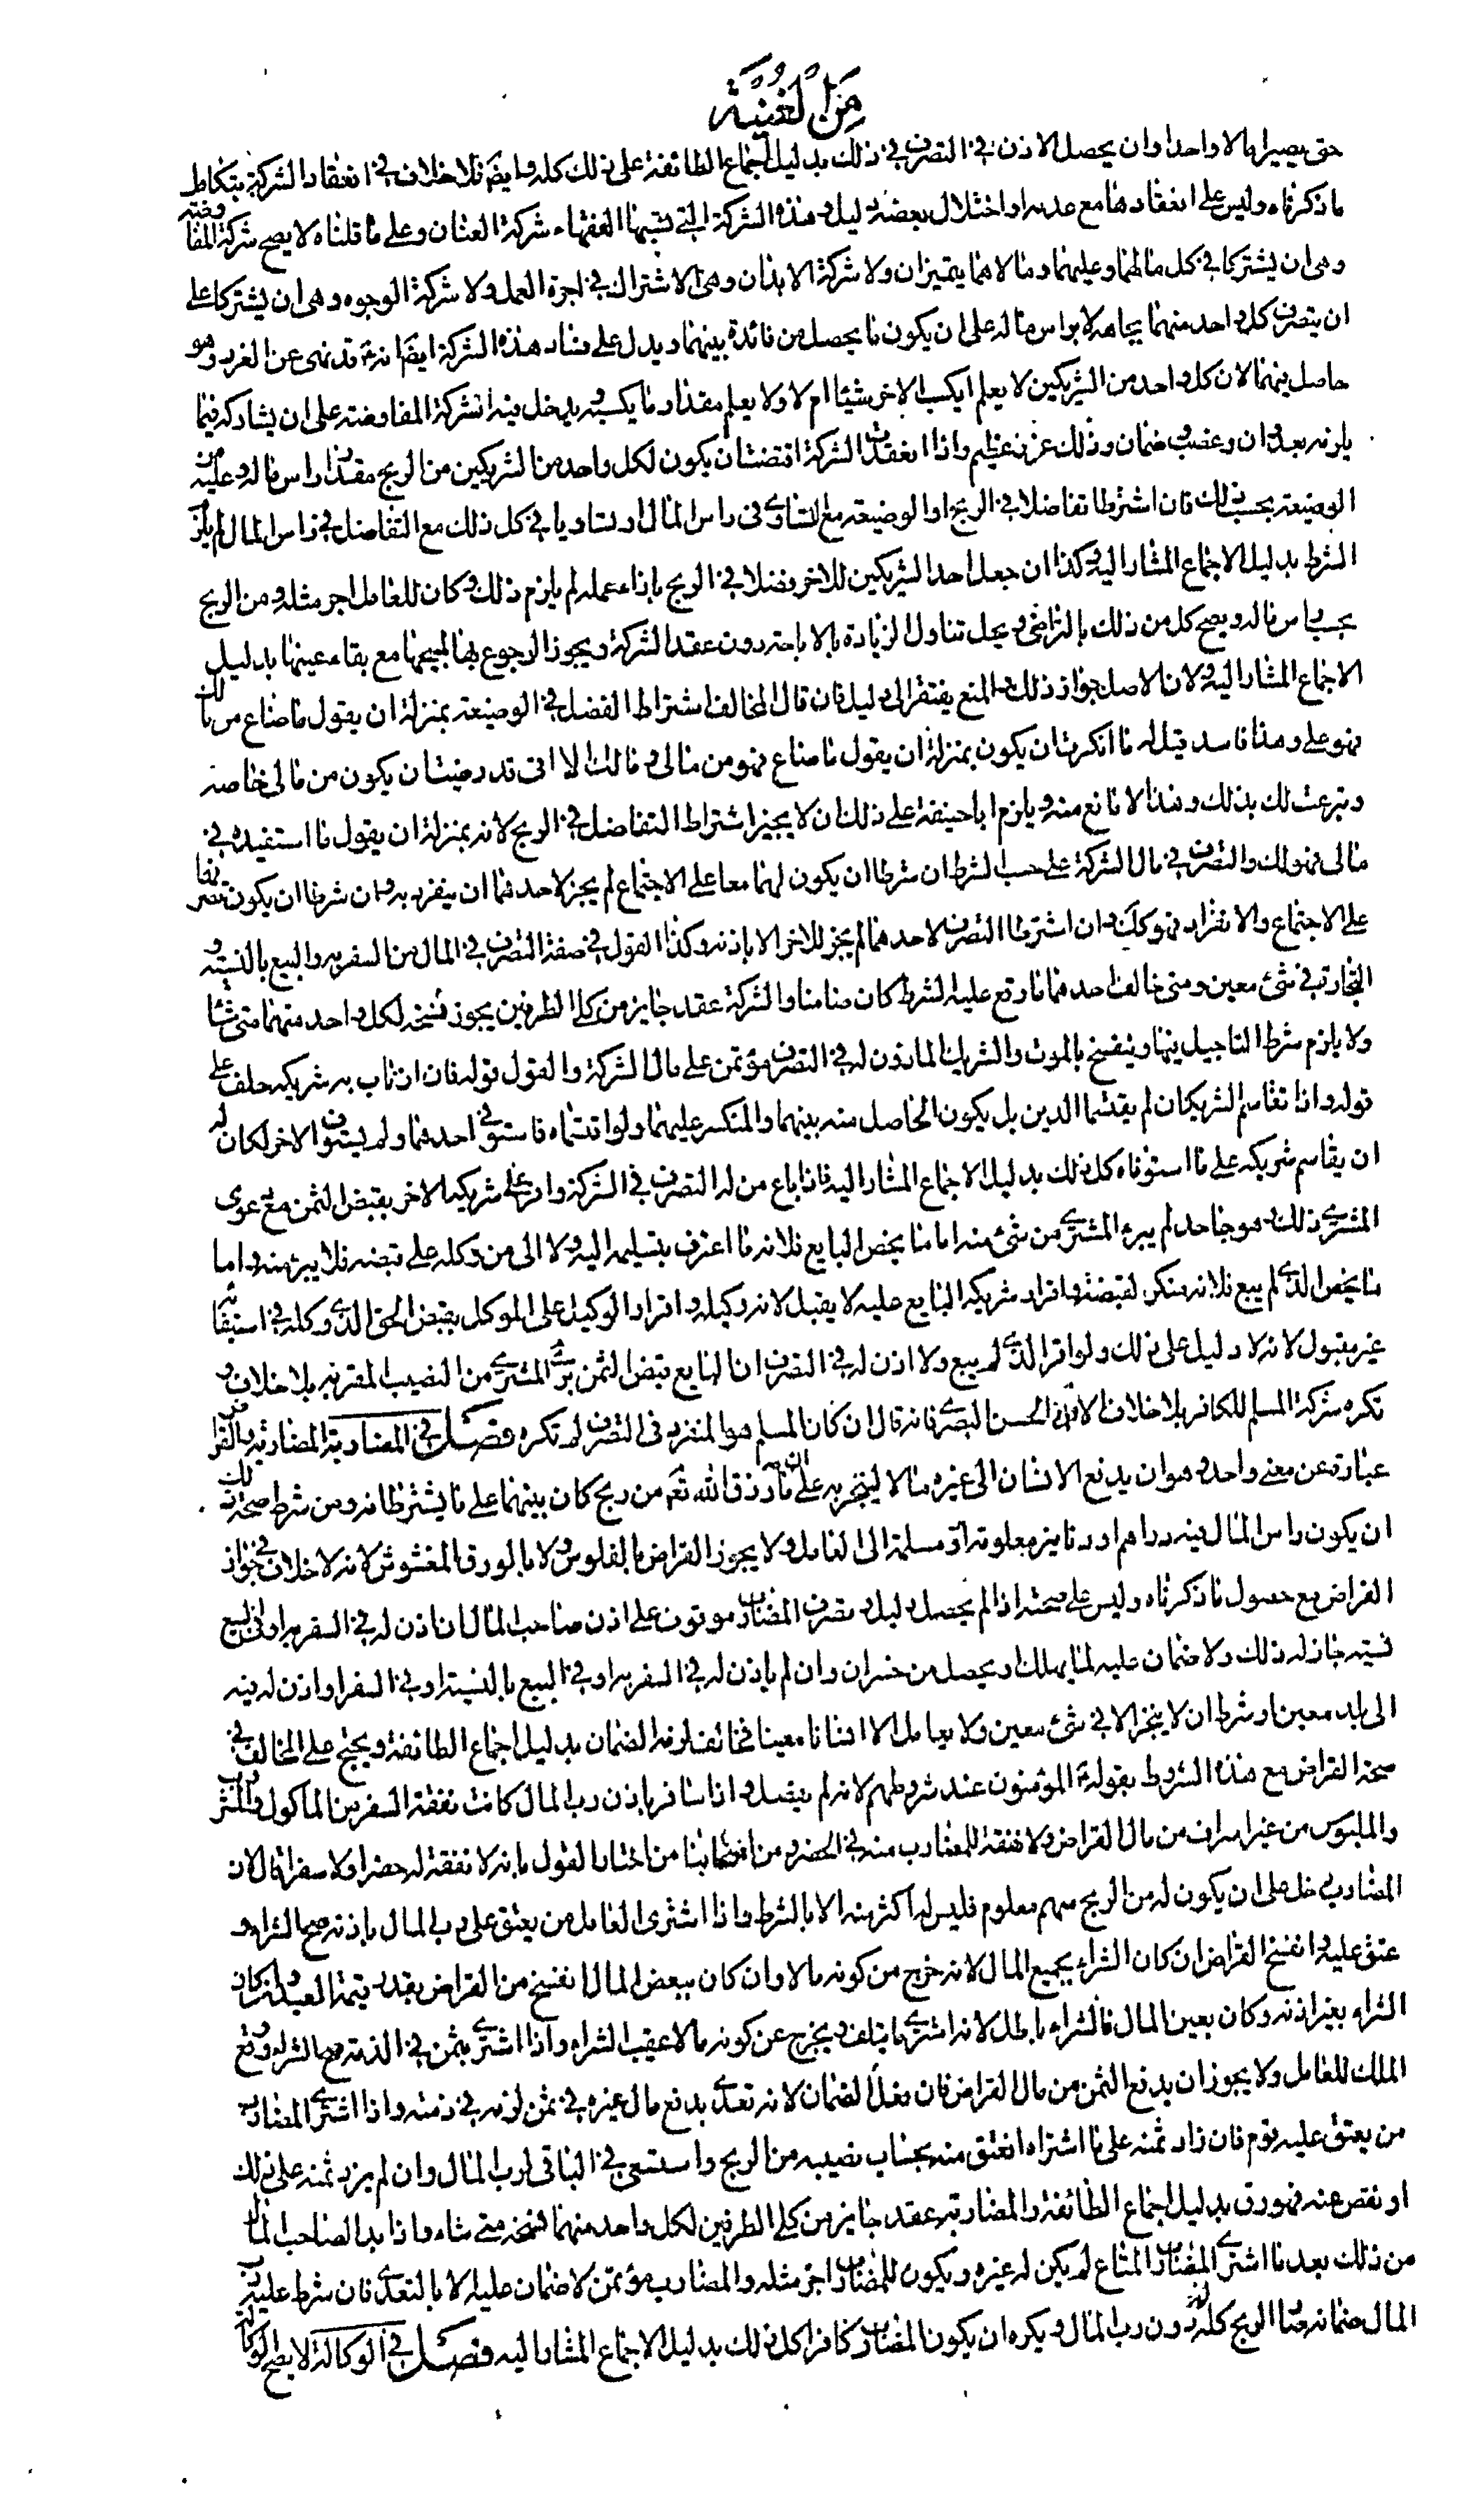 مِنَ الْغُنْيَة
حتى يصيرا مالا واحدا وان يحصل الاذن في التصرف في ذلك بدليل اجماع الطائفة على ذلك كله وايضا فلا خلاف في انعقاد الشركة بتكامل
ما ذكرناه وليس على انعقادها مع عدمه او اختلال بعضه دليل وهذه الشركة التي تسميها الفقهاء شركة العنان وعلى ما قلناه لا يصح شركة المفاوضة
وهي ان يشتركا في كل ما لهما وعليهما ومالاهما يتميزان ولا شركة الابدان وهي الاشتراك في اجرة العمل ولا شركة الوجوه وهي ان يشتركا على
ان يتصرف كل واحد منهما بجاهه لا براس ماله على ان يكون ما يحصل من فائدة بينهما ويدل على فساد هذه الشركة ايضا انه ع قد نهى عن الغرر وهو
حاصل فيهما لان كل واحد من الشريكين لا يعلم ايكسب الاخر شيئا ام لا ولا يعلم مقدار ما يكسبه ويدخل فيه ان شركة المفاوضة على ان يشاركه فيما
يلزمه بعدوان وغصب وضمان وذلك غرر عظيم واذا انعقدت الشركة اقتضت ان يكون لكل واحد من الشريكين من الربح مقدار راس ماله وعليه من
الوضيعة بحسب ذلك فان اشترطا تفاضلا في الربح او الوضيعة مع التساوي في راس المال او تساويا في كل ذلك مع التفاضل في راس المال لم يلزم
الشرط بدليل الاجماع المشار اليه وكذا ان جعل احد الشريكين للاخر فضلا في الربح بازاء عمله لم يلزم ذلك وكان للعامل اجر مثله ومن الربح
بحسب راس ماله ويصح كل من ذلك بالتراضي ويحل تناول الزيادة بالاباحة دون عقد الشركة ويجوز الرجوع بها لمبيحها مع بقاء عينها بدليل
الاجماع المشار اليه ولان الاصل جواز ذلك والمنع يفتقر الى دليل فان قال المخالف اشتراط الفضل في الوضيعة بمنزلة ان يقول ما ضاع من مالك
فهو علي وهذا فاسد قيل له ما انكرت ان يكون بمنزلة ان يقول ما ضاع فهو من مالي ومالك الا اني قد رضيت ان يكون من مالي خاصة
وتبرعت لك بذلك وهذا لا مانع منه ويلزم ابا حنيفة على ذلك ان لا يجيز اشتراط التفاضل في الربح لانه بمنزلة ان يقول ما استفيده في
مالي فهو لك والتصرف في مال الشركة على حسب الشرط ان شرطا ان يكون لهما معا على الاجتماع لم يجز لاحدهما ان ينفرد به وان شرطا ان يكون تصرفهما
على الاجتماع والانفراد فهو كذلك وان اشترطا التصرف لاحدهما لم يجز للاخر الا باذنه وكذا القول في صفة التصرف في المال من السفر به والبيع بالنسية و
التجارة في شئ معين ومتى خالف احدهما ما وقع عليه الشرط كان ضامنا والشركة عقد جايز من كلا الطرفين يجوز فسخه لكل واحد منهما متى شاء
ولا يلزم شرط التاجيل فيها وينفسخ بالموت والشريك الماذون له في التصرف مؤتمن على مال الشركة والقول قوله فان ارتاب به شريكه حلف على
قوله واذا تقاسم الشريكان لم يقتسما الدين بل يكون الحاصل منه بينهما والمنكسر عليهما ولو اقتسماه فاستوفى احدهما ولم يستوف الاخر لكان له
ان يقاسم شريكه على ما استوفاه كل ذلك بدليل الاجماع المشار اليه فاذا باع من له التصرف في الشركة واقر على شريكه الاخر بقبض الثمن مع دعوى
المشتري ذلك وهو جاحد لم يبرء المشتري من شئ منه اما ما يخص البايع فلانه ما اعترف بتسليمه اليه ولا الى من وكله على قبضه فلا يبرء منه واما
ما يخص الذي لم يبع فلانه منكر لقبضه واقرار شريكه البايع عليه لا يقبل لانه وكيله واقرار الوكيل على الموكل بقبض الحق الذي وكله في استيفائه
غير مقبول لانه لا دليل على ذلك ولو اقر الذي لم يبع ولا اذن له في التصرف ان البايع قبض الثمن برئ المشتري من النصيب المقر به بلا خلاف و
تكره شركة المسلم للكافر بلا خلاف الا من الحسن البصري فانه قال ان كان المسلم هو المنفرد في التصرف لم تكره فصل في المضاربة المضاربة والقراض
عبارة عن معنى واحد وهو ان يدفع الانسان الى غيره مالا ليتجر به على ان ما رزق الله تع من ربح كان بينهما على ما يشترطانه ومن شرط صحة ذلك
ان يكون راس المال فيه دراهم او دنانير معلومة مسلمة الى العامل ولا يجوز القراض بالفلوس ولا بالورق المغشوش لانه لا خلاف في جواز
القراض مع حصول ما ذكرناه وليس على صحته اذا لم يحصل دليل وتصرف المضارب موقوف على اذن صاحب المال ان اذن له في السفر به او في البيع
نسية جاز له ذلك ولا ضمان عليه لما يهلك او يحصل من خسران وان لم ياذن له في السفر به او في البيع بالنسية او في السفر او اذن له فيه
الى بلد معين او شرط ان لا يتجر الا في شئ معين ولا يعامل الا انسانا معينا فخالف لزمه الضمان بدليل اجماع الطائفة ويحتج على المخالف في
صحة القراض مع هذه الشروط بقوله ع المؤمنون عند شروطهم لانه لم يفصل واذا سافر باذن رب المال كانت نفقة السفر من الماكول والمشروب
والملبوس من غير اسراف من مال القراض ولا نفقة للمضارب منه في الحضر ومن اصحابنا من اختار القول بانه لا نفقة له حضرا ولا سفرا قال لان
المضارب دخل على ان يكون له من الربح سهم معلوم فليس له اكثر منه الا بالشرط واذا اشترى العامل من يعتق على رب المال باذنه صح الشراء و
عتق عليه وانفسخ القراض ان كان الشراء بجميع المال لانه خرج من كونه مالا وان كان ببعض المال انفسخ من القراض بقدر قيمة العبد وان كان
الشراء بغير اذنه وكان بعين المال فالشراء باطل لانه اشترى ما يتلف ويخرج عن كونه مالا عقيب الشراء واذا اشترى بثمن في الذمة صح الشراء ووقع
الملك للعامل ولا يجوز ان يدفع الثمن من مال القراض فان فعل لزمه الضمان لانه تعدى بدفع مال غيره في ثمن لزمه في ذمته واذا اشترى المضارب
من يعتق عليه قوم فان زاد ثمنه على ما اشتراه انعتق منه بحساب نصيبه من الربح واستسعى في الباقي لرب المال وان لم يزد ثمنه على ذلك
او نقص عنه فهو رق بدليل اجماع الطائفة والمضاربة عقد جايز من كلا الطرفين لكل واحد منهما فسخه متى شاء واذا بدا لصاحب المال
من ذلك بعد ما اشترى المضارب المتاع لم يكن له غيره ويكون للمضارب اجر مثله والمضارب مؤتمن لا ضمان عليه الا بالتعدي فان شرط عليه رب
المال ضمانه صار الربح كله له دون رب المال ويكره ان يكون المضارب كافرا كل ذلك بدليل الاجماع المشار اليه فصل في الوكالة لا يصح الوكالة